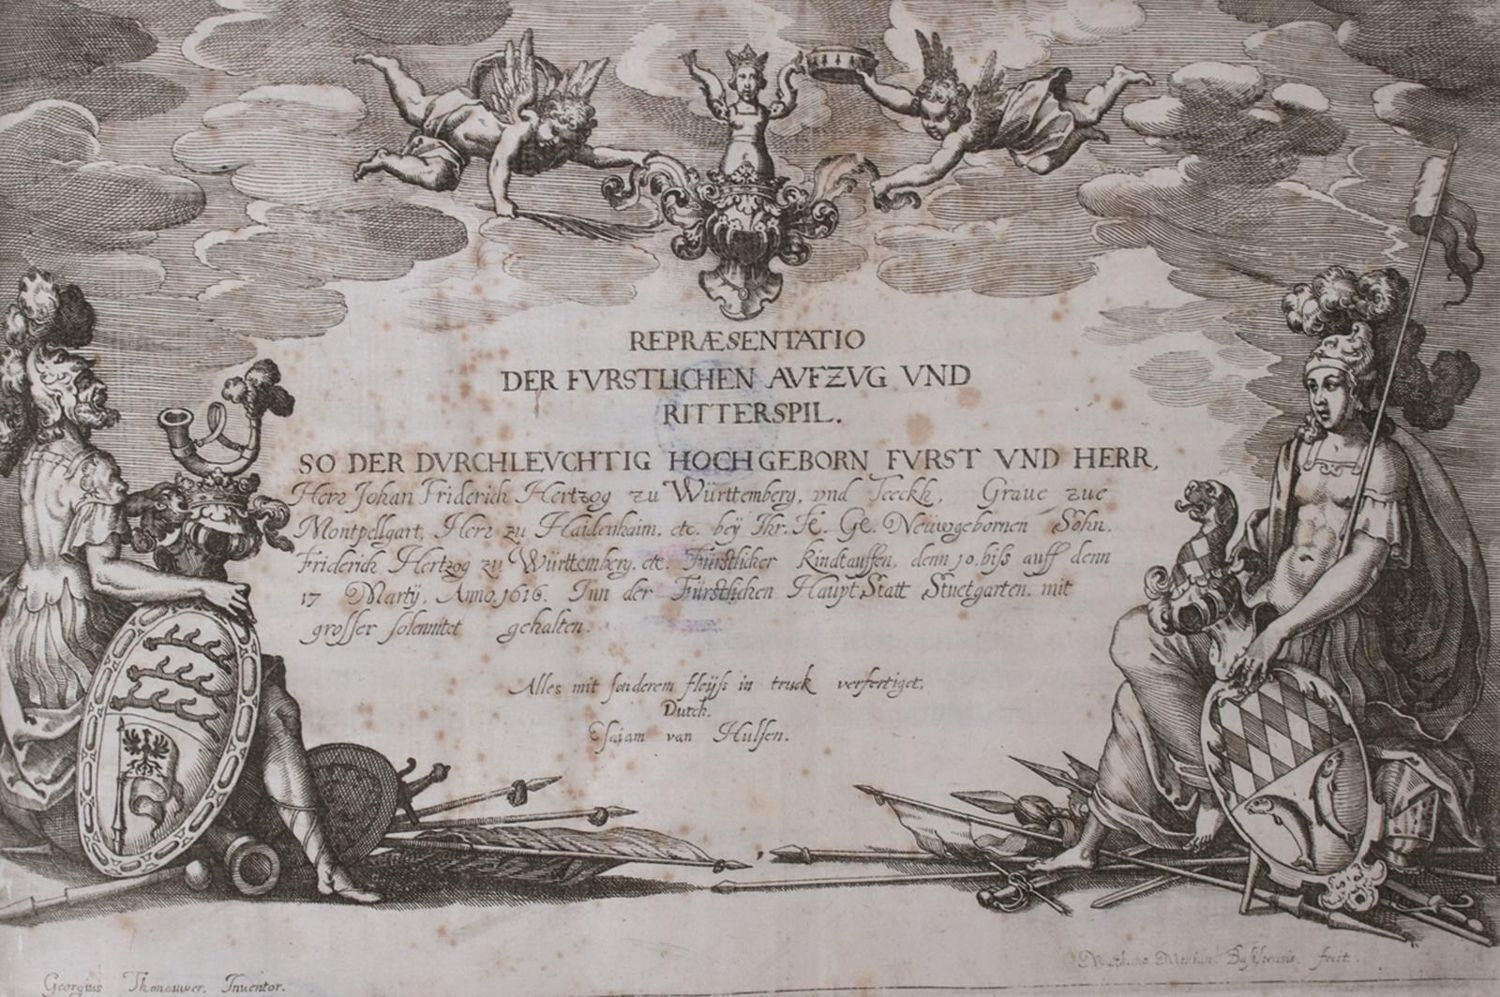 REPRÆSENTATIO
DER FVRSTLICHEN AVFZVG VND
RITTERSPIL.
SO DER DVRCHLEVCHTIG HOCHGEBORN FVRST VND HERR,
Herr Johan Friderich Hertzog zu Württemberg, vnd Teeckh, Graue zue
Montpellgart, Herr zu Haidenhaim, etc. beÿ Ihr. Fr. Ge. Neuwgebornen Söhn.
Friderich Hertzog zu Württemberg. etc. Fürstlicher Kindtauffen, denn 10. biss auff denn
17 Martÿ, Anno 1616. Inn der Fürstlichen Haupt Statt Stuetgarten, mit
grosser solennitet gehalten.
Alles mit sonderem fleÿss in truck verfertiget,
Durch.
Esaiam van Hulsen.
Georgius Thonauwer. Inventor.
Basileensis. fecit.